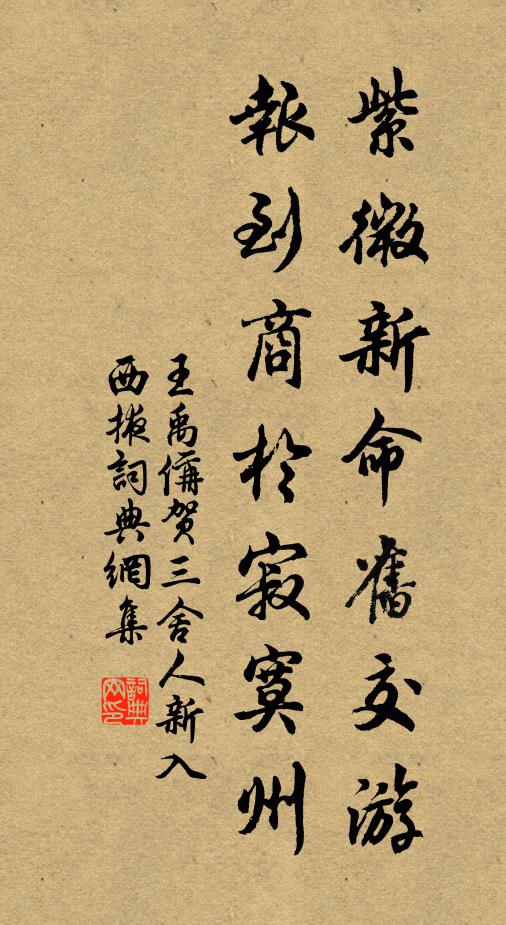 紫微新命舊交游
報到商於寂寞州
王禹偁賀三舍人新入
西掖詞典網集
詞典
网印